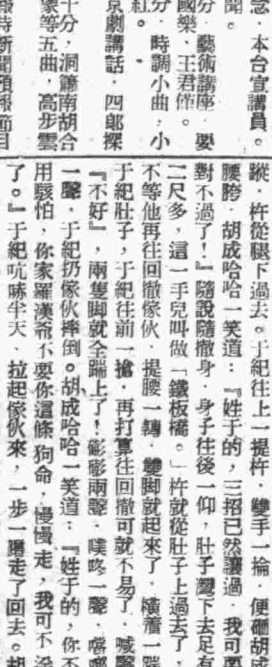 念．本台宣講員。
聞。
分．藝術講座．要
國樂．王君僅。
分．時調小曲．小
紅。
京劇講話．四郎探
十分．洞簫南胡合
豪等五曲．高步雲
報時新聞預報節目
蹤．杵從腿下過去。于紀往上一提杵．雙手一掄．便砸胡
腰胯．胡成哈哈一笑道：『姓于的，三招已然讓過．我可
對不過了！』隨說隨撤身．身子往後一仰，肚子灣下去足
二尺多，這一手兒叫做「鐵板橋。」杵就從肚子上過去了
不等他再往回撤傢伙．提腰一轉．雙脚就起來了．橫着一
于紀肚子，于紀往前一搶．再打算往回撤可就不易了．喊聲
『不好』，兩隻脚就全踹上了！嘭嘭兩聲．噗咚一聲．噹
一聲，于紀扔傢伙摔倒。胡成哈哈一笑道：『姓于的，你不
用駭怕，你家羅漢爺不要你這條狗命，慢慢走，我可不
了。』于紀吭嚇半天．拉起傢伙來，一步一蹭走了回去。胡